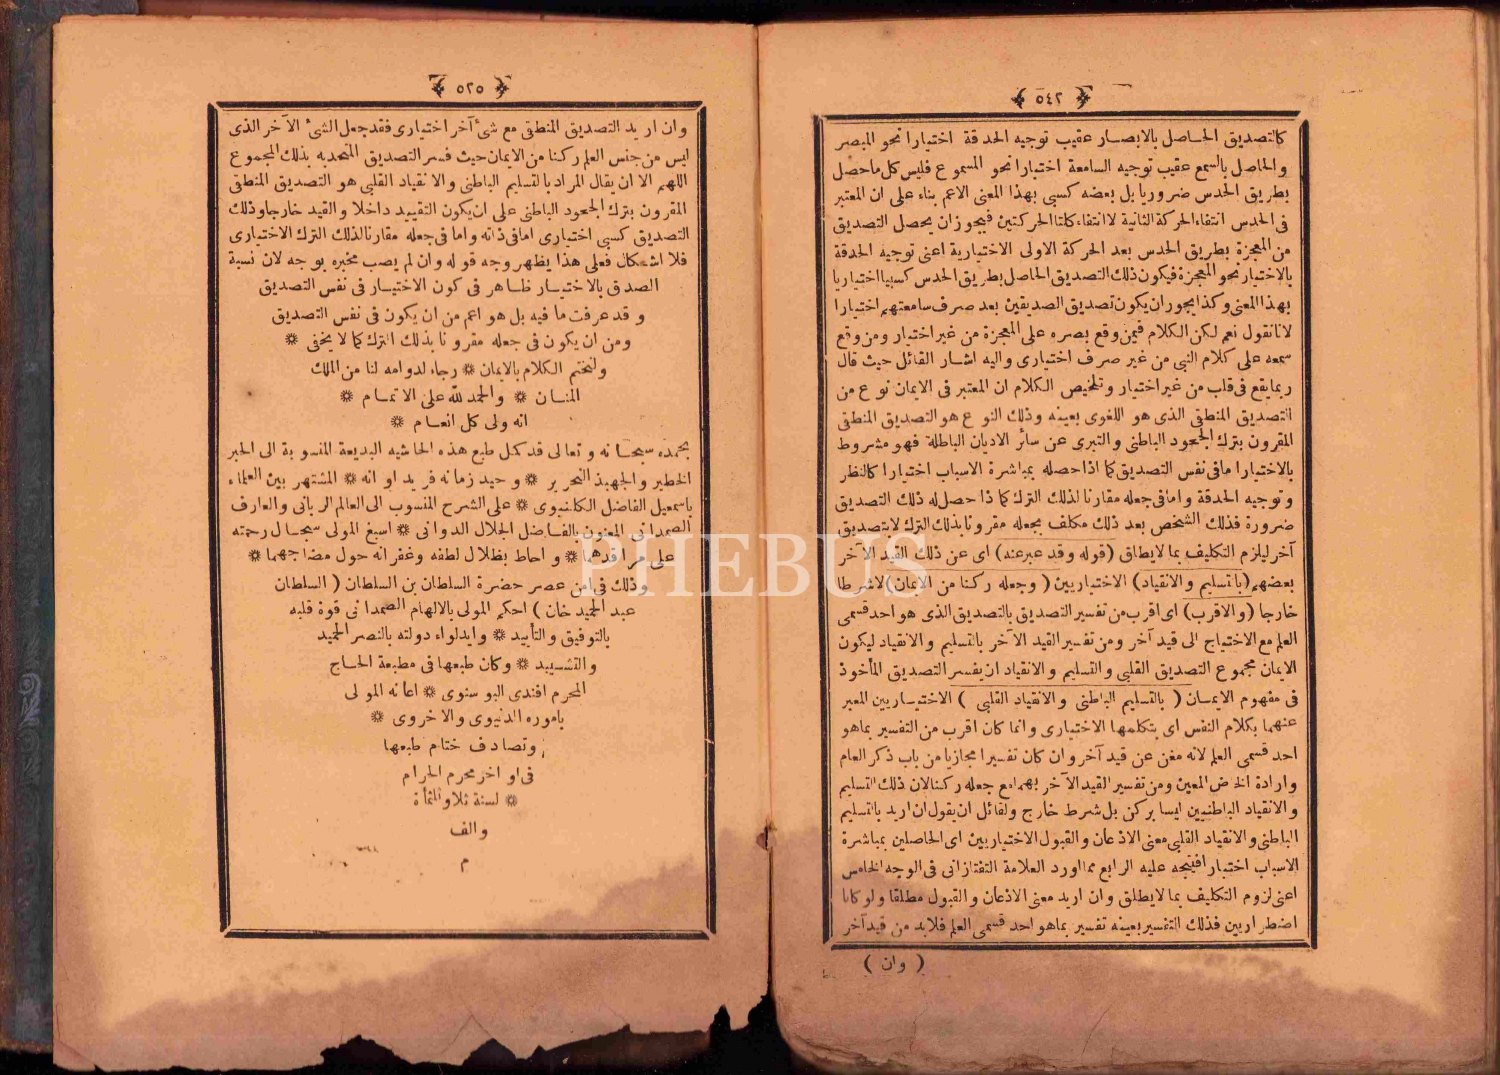 ٥٤٢
كالتصديق الحاصل بالابصار عقيب توجيه الحدقة اختيارا نحو المبصر
والحاصل بالسمع عقيب توجيه السامعة اختيارا نحو المسموع فليس كل ما حصل
بطريق الحدس ضروريا بل بعضه كسبى بهذا المعنى الاعم بناء على ان المعتبر
فى الحدس انتفاء الحركة الثانية لا انتفاء كلتا الحركتين فيجوز ان يحصل التصديق
من المعجزة بطريق الحدس بعد الحركة الاولى الاختيارية اعنى توجيه الحدقة
بالاختيار نحو المعجزة فيكون ذلك التصديق الحاصل بطريق الحدس كسبيا اختياريا
بهذا المعنى وكذا يجوز ان يكون تصديق الصديقين بعد صرف سامعتهم اختيارا
لانا نقول نعم لكن الكلام فيمن وقع بصره على المعجزة من غير اختيار ومن وقع
سمعه على كلام النبى من غير صرف اختيارى واليه اشار القائل حيث قال
ربما يقع فى قلب من غير اختيار وتلخيص الكلام ان المعتبر فى الايمان نوع من
التصديق المنطقى الذى هو اللغوى بعينه وذلك النوع هو التصديق المنطقى
المقرون بترك الجحود الباطنى والتبرى عن سائر الاديان الباطلة فهو مشروط
بالاختيار اما فى نفس التصديق كما اذا حصله بمباشرة الاسباب اختيارا كالنظر
وتوجيه الحدقة واما فى جعله مقارنا لذلك الترك كما اذا حصل له ذلك التصديق
ضرورة فذلك الشخص بعد ذلك مكلف بجعله مقرونا بذلك الترك لا بتصديق
آخر ليلزم التكليف بما لا يطاق (قوله وقد عبر عنه) اى عن ذلك القيد الآخر
بعضهم (بالتسليم والانقياد) الاختياريين (وجعله ركنا من الايمان) لا شرطا
خارجا (والاقرب) اى اقرب من تفسير التصديق بالتصديق الذى هو احد قسمى
العلم مع الاحتياج الى قيد آخر ومن تفسير القيد الآخر بالتسليم والانقياد ليكون
الايمان مجموع التصديق القلبى والتسليم والانقياد ان يفسر التصديق المأخوذ
فى مفهوم الايمان (بالتسليم الباطنى والانقياد القلبى) الاختياريين المعبر
عنهما بكلام النفس اى بتكلمها الاختيارى وانما كان اقرب من التفسير بما هو
احد قسمى العلم لانه مغن عن قيد آخر وان كان تفسيرا مجازيا من باب ذكر العام
وارادة الخاص المعين ومن تفسير القيد الآخر بهما مع جعله ركنا لان ذلك التسليم
والانقياد الباطنيين ليسا بركن بل شرط خارج ولقائل ان يقول ان اريد بالتسليم
الباطنى والانقياد القلبى معنى الاذعان والقبول الاختياريين اى الحاصلين بمباشرة
الاسباب اختيارا فيتجه عليه الرابع مما اورد العلامة التفتازانى فى الوجه الخامس
اعنى لزوم التكليف بما لا يطلق وان اريد معنى الاذعان والقبول مطلقا ولو كانا
اضطراريين فذلك التفسير بعينه تفسير بما هو احد قسمى العلم فلابد من قيد آخر
(وان)
٥٢٥
وان اريد التصديق المنطقى مع شئ آخر اختيارى فقد جعل الشئ الآخر الذى
ليس من جنس العلم ركنا من الايمان حيث فسر التصديق المتحد به بذلك المجموع
اللهم الا ان يقال المراد بالتسليم الباطنى والانقياد القلبى هو التصديق المنطقى
المقرون بترك الجحود الباطنى على ان يكون التقييد داخلا والقيد خارجا وذلك
التصديق كسبى اختيارى اما فى ذاته واما فى جعله مقارنا لذلك الترك الاختيارى
فلا اشكال فعلى هذا يظهر وجه قوله وان لم يصب مخبره بوجه لان نسبة
الصدق بالاختيار ظاهر فى كون الاختيار فى نفس التصديق
وقد عرفت ما فيه بل هو اعم من ان يكون فى نفس التصديق
ومن ان يكون فى جعله مقرونا بذلك الترك كما لا يخفى ❋
ولنختم الكلام بالايمان ❋ رجاء لدوامه لنا من الملك
المنان ❋ والحمد لله على الاتمام ❋
انه ولى كل انعام ❋
بحمده سبحانه وتعالى قد كمل طبع هذه الحاشيه البديعة المنسوبة الى الحبر
الخطير والجهبذ النحرير ❋ وحيد زمانه فريد اوانه ❋ المشتهر بين العلماء
باسمعيل الفاضل الكلنبوى ❋ على الشرح المنسوب الى العالم الربانى والعارف
الصمدانى المعنون بالفاضل الجلال الدوانى ❋ اسبغ المولى سجال رحمته
على مراقدهما ❋ واحاط بظلال لطفه وغفرانه حول مضاجهما ❋
وذلك فى امن عصر حضرة السلطان بن السلطان (السلطان
عبد المجيد خان) احكم المولى بالالهام الصمدانى قوة قلبه
بالتوفيق والتأييد ❋ وايد لواء دولته بالنصر المجيد
والتشييد ❋ وكان طبعها فى مطبعة الحاج
المحرم افندى البوسنوى ❋ اعانه المولى
باموره الدنيوى والاخروى ❋
وتصادف ختام طبعها
فى اواخر محرم الحرام
❋ لسنة ثلاث وثمانة
والف
م
PHEBUS